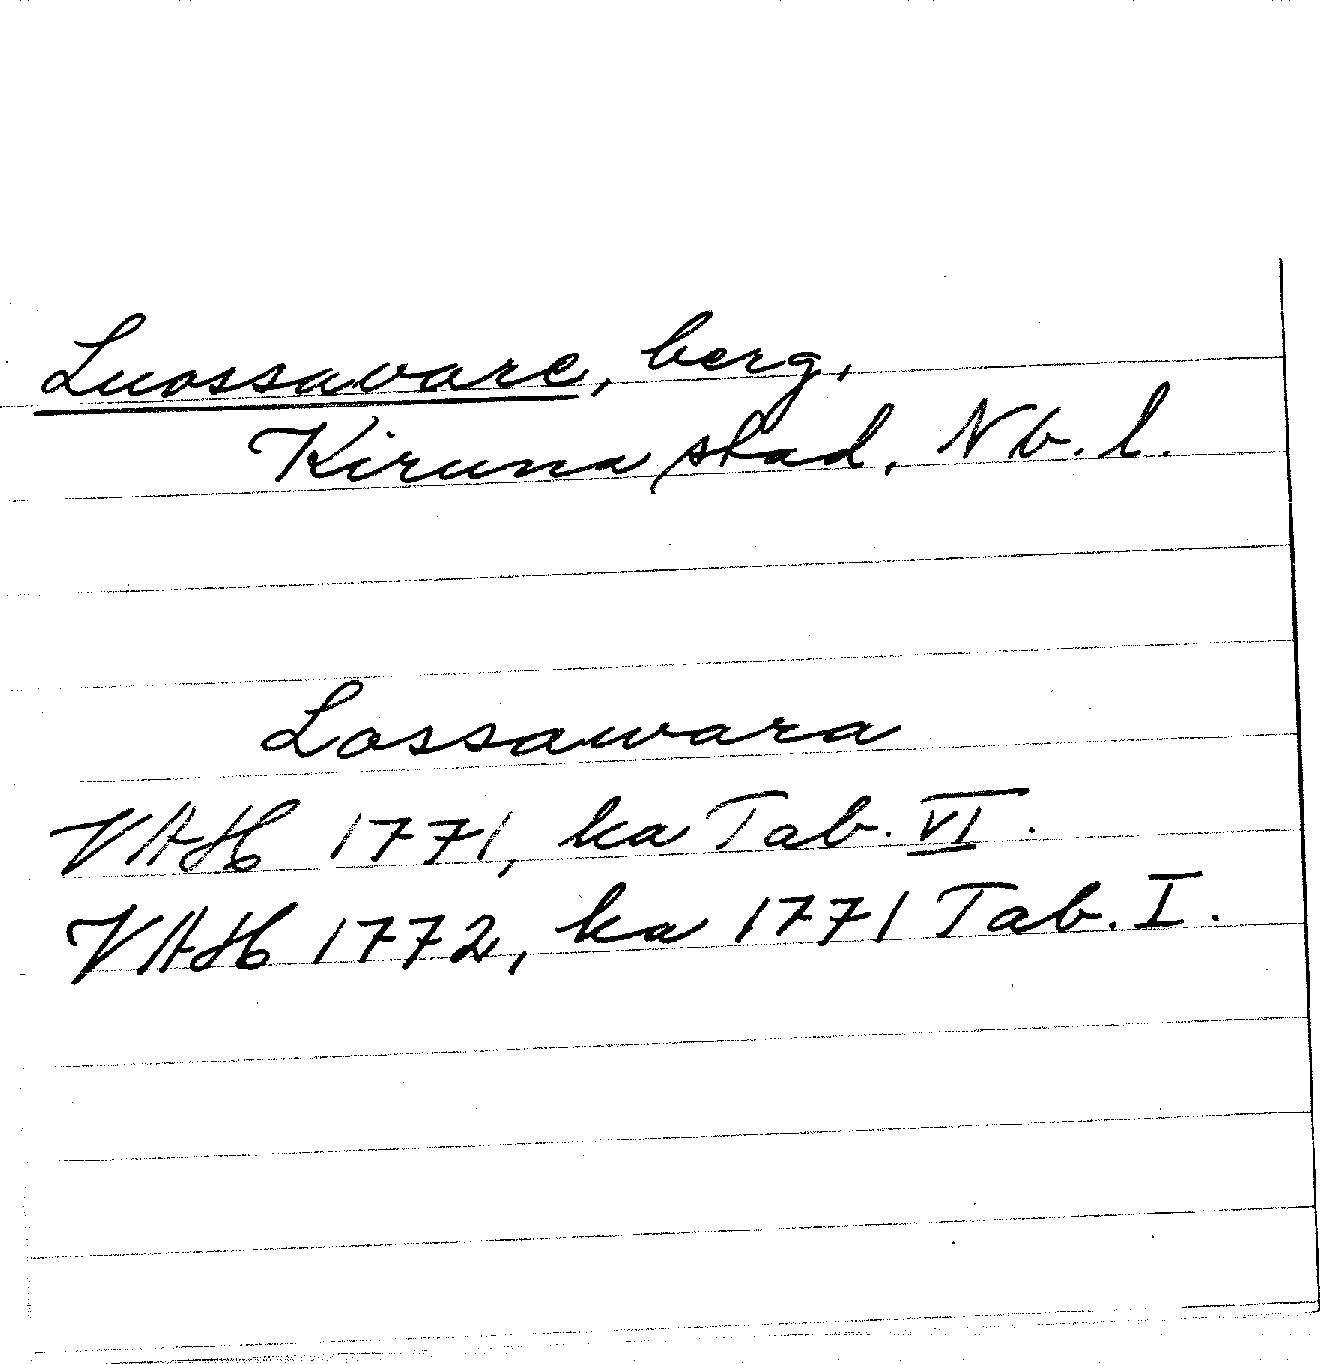 Luossavare, berg,
Kiruna stad, Nb. l.
Lossawara
VAH 1771, ka Tab. VI.
VAH 1772, ka 1771 Tab. I.